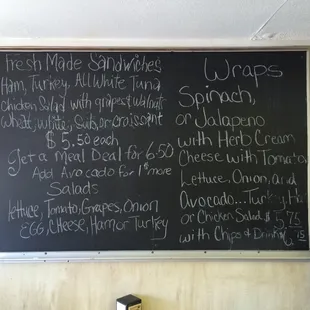 Fresh Made Sandwiches
Ham, Turkey, All White Tuna
Chicken Salad with grapes & walnut
wheat, white, Sub, or croissant
$5.50 each
Get a Meal Deal for 6.50
Add Avocado for 1 more
Salads
lettuce, Tomato, Grapes, Onion
EGG, CHeese, Ham or Turkey
Wraps
Spinach,
or Jalapeno
with Herb Cream
Cheese with Tomato,
Lettuce, Onion, and
Avocado... Turkey, Ham
or Chicken Salad $5.75
with Chips & Drink